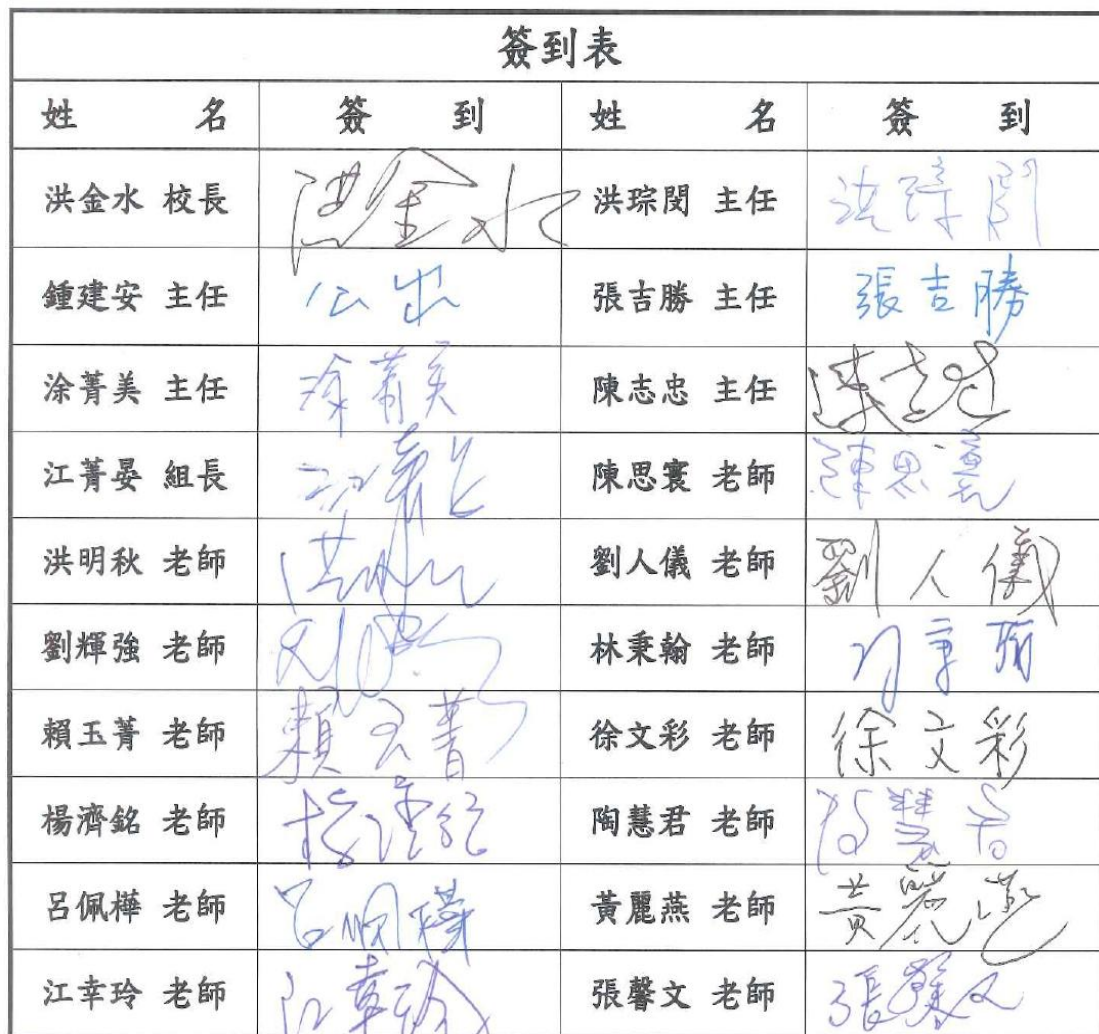 簽到表
姓名 簽到 姓名 簽到
洪金水 校長 洪金水 洪琮閔 主任 洪琮閔
鍾建安 主任 公出 張吉勝 主任 張吉勝
涂菁美 主任 涂菁美 陳志忠 主任 陳志忠
江菁晏 組長 陳思寰 老師 陳思寰
洪明秋 老師 洪明秋 劉人儀 老師 劉人儀
劉輝強 老師 林秉翰 老師
賴玉菁 老師 賴玉菁 徐文彩 老師 徐文彩
楊濟銘 老師 楊濟銘 陶慧君 老師 陶慧君
呂佩樺 老師 呂佩樺 黃麗燕 老師 黃麗燕
江幸玲 老師 江幸玲 張馨文 老師 張馨文